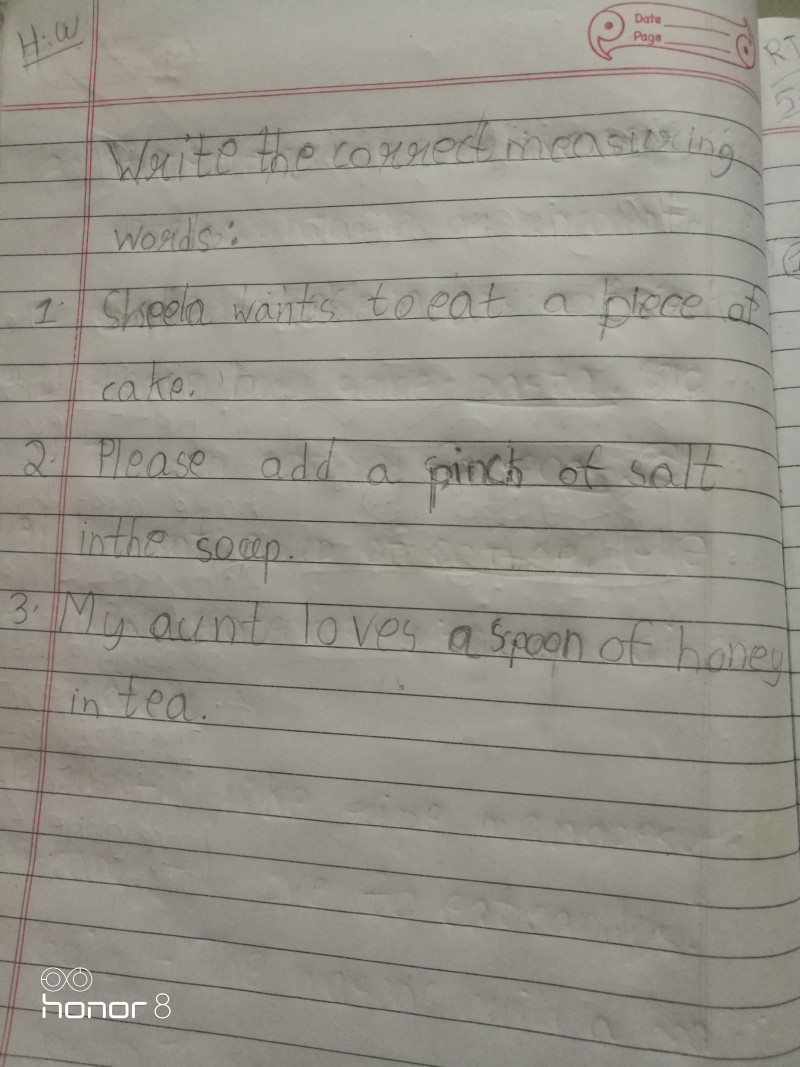 H.W
Date
Page
RT
5
Write the correct measuring
words:
1. Sheela wants to eat a piece of
cake.
2. Please add a pinch of salt
in the soup.
3. My aunt loves a spoon of honey
in tea.
honor 8